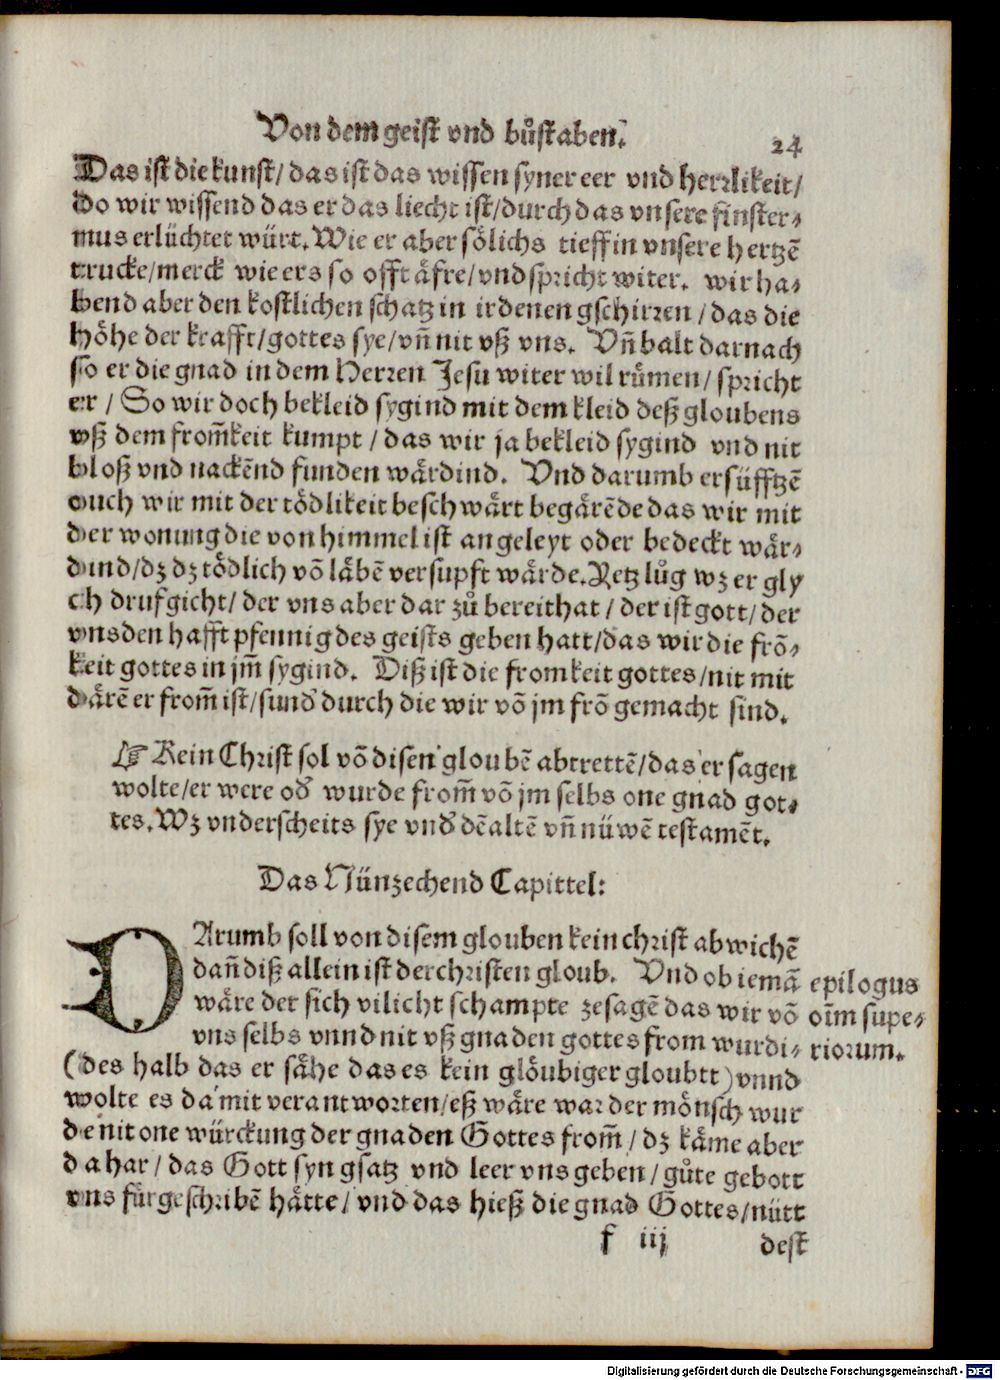 Von dem geist vnd bůstaben. 24
Das ist die kunst/ das ist das wissen syner eer vnd herrlikeit/
Do wir wissend das er das liecht ist/durch das vnsere finster-
mus erlüchtet würt. Wie er aber sölichs tieff in vnsere hertzē
trucke/merck wie ers so offt äfre/vnd spricht witer. wir ha-
bend aber den kostlichen schatz in irdenen gschirren /das die
höhe der krafft/gottes sye/vñ nit vß vns. Vñ balt darnach
so er die gnad in dem Herren Jesu witer wil růmen/ spricht
er / So wir doch bekleid sygind mit dem kleid deß gloubens
vß dem from̃keit kumpt /das wir ja bekleid sygind vnd nit
bloß vnd nackēnd funden wärdind. Vnd darumb ersüfftzē
ouch wir mit der tödlikeit beschwärt begärēde das wir mit
der wonung die von himmel ist angeleyt oder bedeckt wär-
dind/dz dz tödlich vō läbē versupft wärde. Retz lůg wz er gly
ch druf gicht/ der vns aber dar zů bereit hat /der ist gott/der
vns den hafft pfennig des geists geben hatt/das wir die frō-
keit gottes in jm̃ sygind. Diß ist die fromkeit gottes/nit mit
därē er from̃ ist/sund' durch die wir vō jm frō gemacht sind.
☞ Kein Christ sol vō disen gloubē abtrettē/das er sagen
wolte/er were od' wurde from̃ vō jm selbs one gnad got-
tes. Wz vnderscheits sye vnd' dē altē vñ nüwē testamēt.
Das Nünzechend Capittel:
DArumb soll von disem glouben kein christ abwichē
dañ diß allein ist der christen gloub. Vnd ob iemā
wäre der sich vilicht schampte zesagē das wir vō
vns selbs vnnd nit vß gnaden gottes from wurdi-
(des halb das er sähe das es kein glöubiger gloubtt) vnnd
wolte es da mit verantworten/eß wäre war der mönsch wur
de nit one würckung der gnaden Gottes from̃ /dz käme aber
dahar/das Gott syn gsatz vnd leer vns geben/gůte gebott
vns fürgeschribē hätte/ vnd das hieß die gnad Gottes/nütt
epilogus
oīm supe-
riorum.
f iij dest
Digitalisierung gefördert durch die Deutsche Forschungsgemeinschaft - DFG